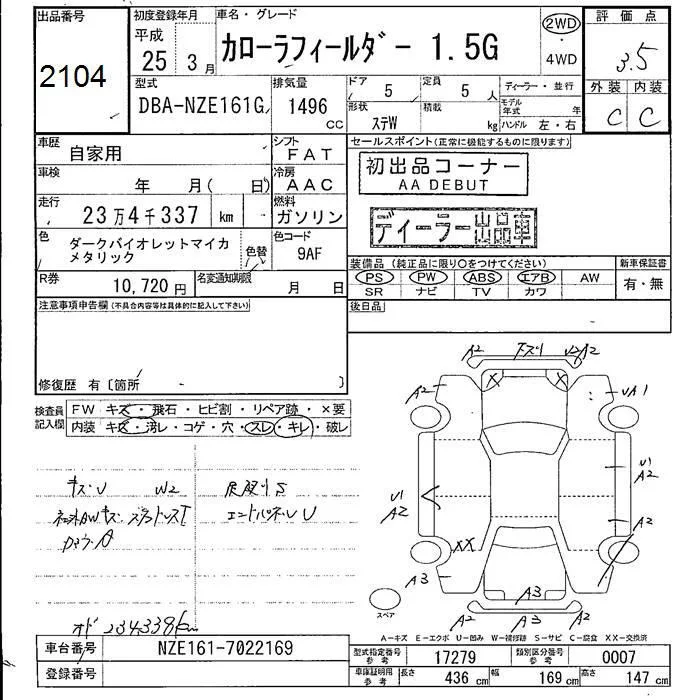 出品番号 初度登録年月 車名・グレード 2WD 評価点
平成 カローラフィールダー 1.5G ・
2104 25年 3月 4WD 3.5
型式 排気量 ドア 定員 ディーラー・並行 外装 内装
DBA-NZE161G 1496 5 5人 モデル年式 年 C C
cc 形状 ステW 積載 kg ハンドル 左・右
車歴 自家用 シフト FAT セールスポイント(正常に機能するものに限ります)
車検 年 月( 日) 冷房 AAC 初出品コーナー
AA DEBUT
走行 23万4千337 km 燃料 ガソリン ディーラー出品車
色 ダークバイオレットマイカ 色替 色コード
メタリック 9AF
装備品(純正品に限り○をつけてください) 新車保証書
R券 10,720円 名変通知期限 月 日 PS PW ABS エアB AW 有・無
SR ナビ TV カワ
注意事項申告欄(不具合内容等は具体的に記入して下さい) 後日品
修復歴 有〔箇所 〕
検査員記入欄 FW キズ・飛石・ヒビ割・リペア跡・×要
内装 キズ・汚レ・コゲ・穴・スレ・キレ・破レ
A2 下ズリ U2 A2
A2 X X UA1
U1 A2 U1 A2
A2
XX
A3 A3 A3
A2 A3 A2
スペア
キズU W2
エンドパネルU
オド 234338km
A-キズ E-エクボ U-凹み W-補修跡 S-サビ C-腐食 XX-交換済
車台番号 NZE161-7022169 型式指定番号 参考 17279 類別区分番号 参考 0007
登録番号 車庫証明用 参考 長さ 436 cm 幅 169 cm 高さ 147 cm